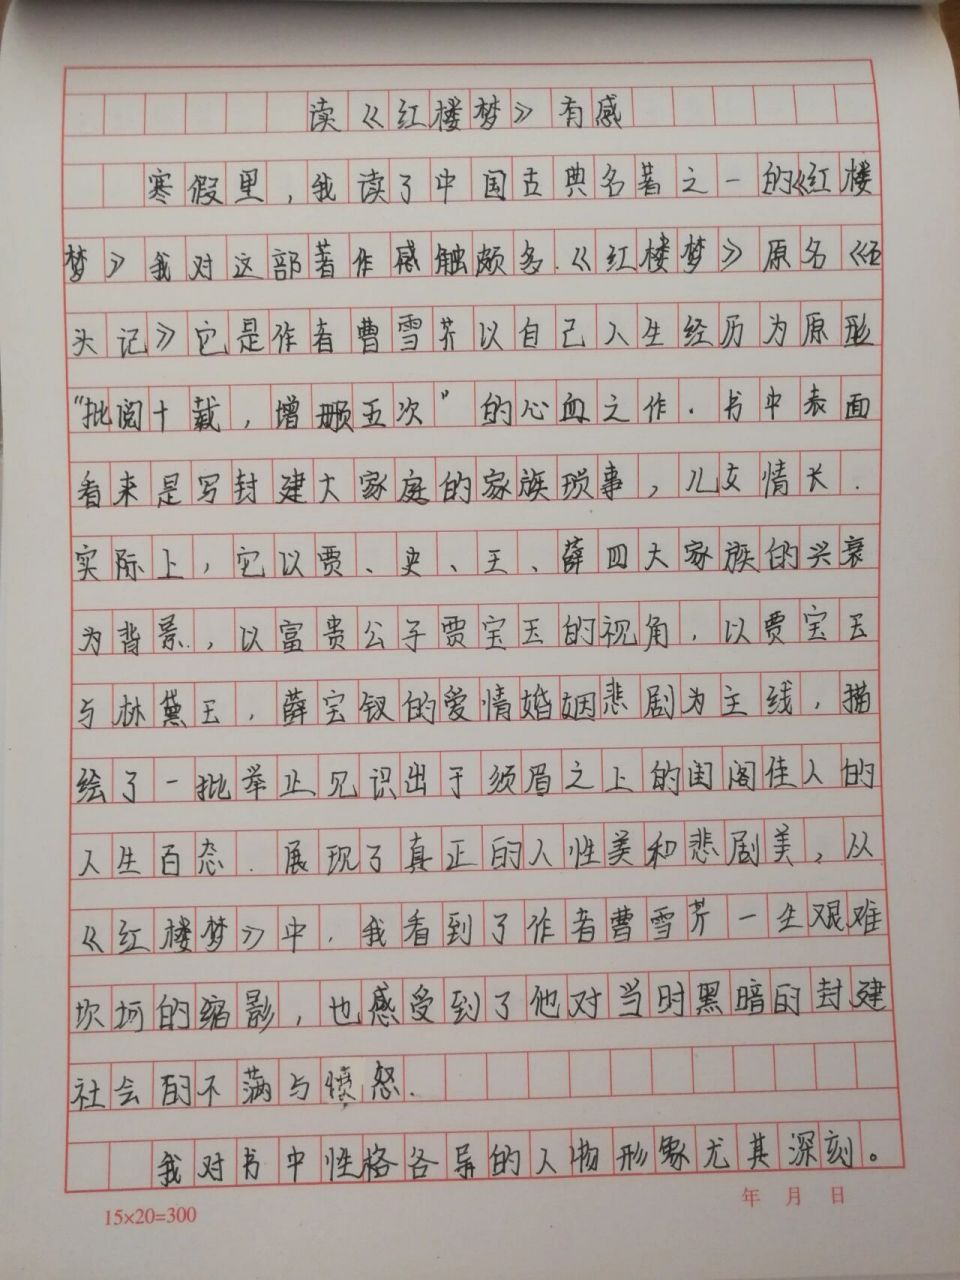 读《红楼梦》有感
寒假里，我读了中国古典名著之一的《红楼
梦》我对这部著作感触颇多.《红楼梦》原名《石
头记》它是作者曹雪芹以自己人生经历为原形
“批阅十载，增删五次”的心血之作.书中表面
看来是写封建大家庭的家族琐事，儿女情长.
实际上，它以贾、史、王、薛四大家族的兴衰
为背景.，以富贵公子贾宝玉的视角，以贾宝玉
与林黛玉，薛宝钗的爱情婚姻悲剧为主线，描
绘了一批举止见识出于须眉之上的闺阁佳人的
人生百态.展现了真正的人性美和悲剧美，从
《红楼梦》中，我看到了作者曹雪芹一生艰难
坎坷的缩影，也感受到了他对当时黑暗的封建
社会的不满与愤怒.
我对书中性格各异的人物形象尤其深刻。
15×20=300
年 月 日